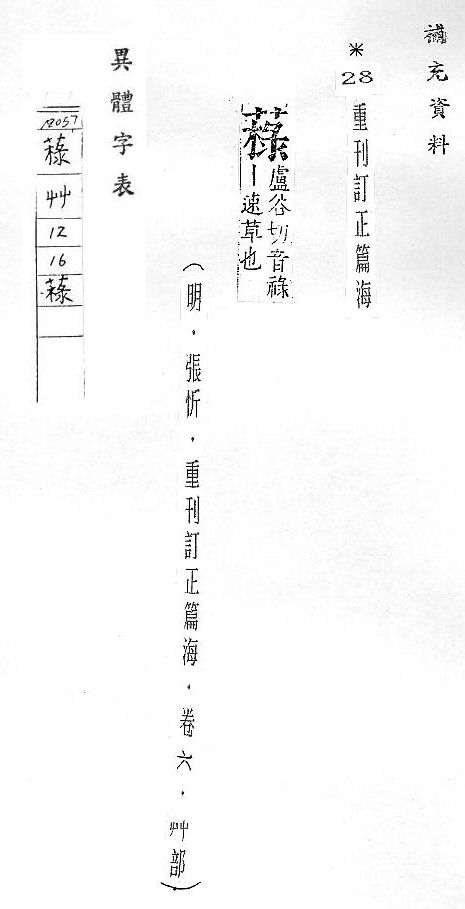 補充資料
*28 重刊訂正篇海
盧谷切音祿
｜速草也
(明．張忻．重刊訂正篇海．卷六．艸部)
異體字表
艸
12
16